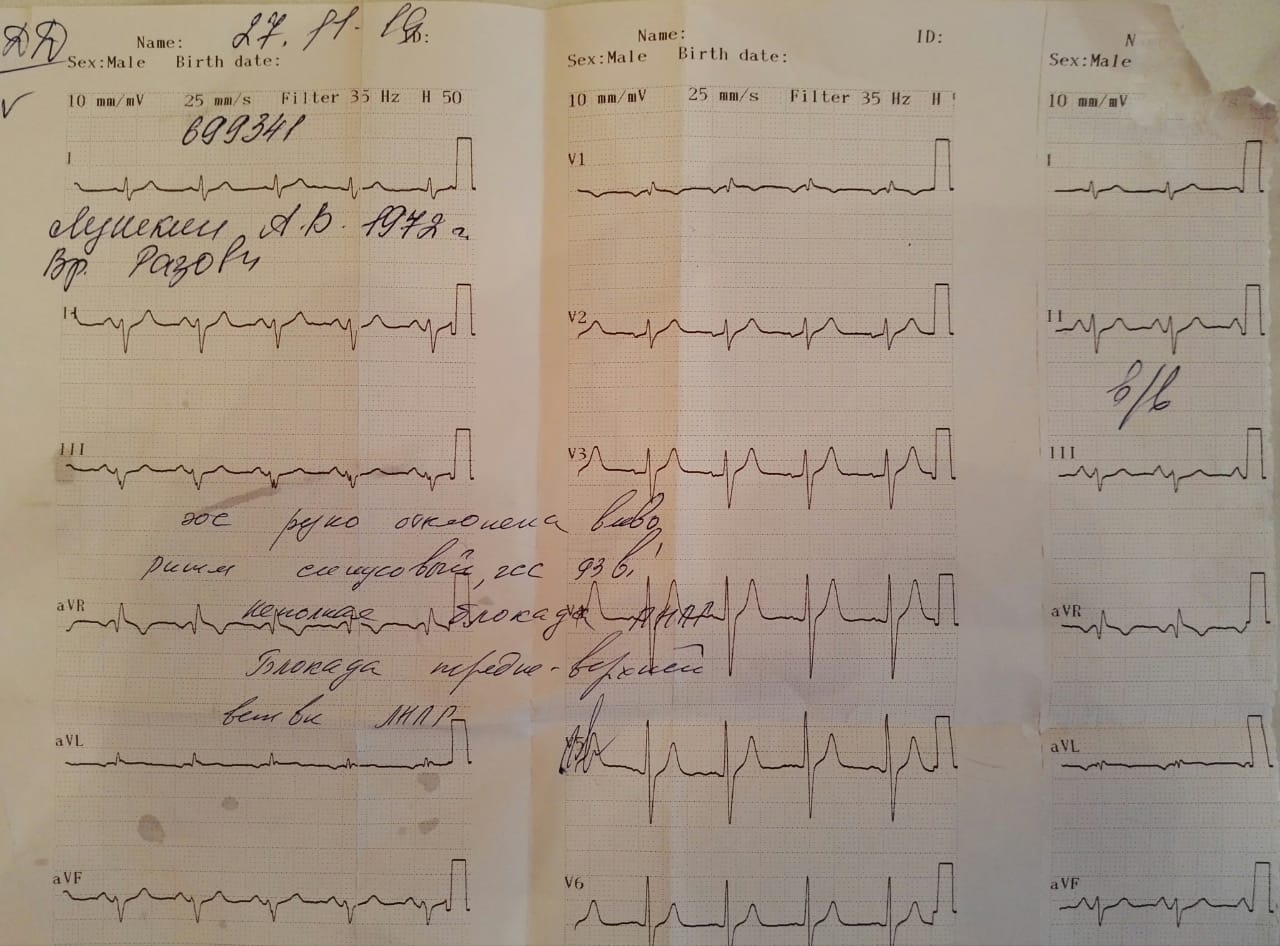 ДД
Name: 27. 11. 19 ID:
Sex:Male Birth date:
10 mm/mV 25 mm/s Filter 35 Hz H 50
699341
I
А.В. 1972 г
Вр.
II
III
эос резко отклонена влево,
ритм синусовый, чсс 93 в'
aVR
неполная блокада ПНПГ
Блокада передне-верхней
ветви ЛНПГ
aVL
aVF
Name: ID:
Sex:Male Birth date:
10 mm/mV 25 mm/s Filter 35 Hz H
V1
V2
V3
V5
V6
N
Sex:Male
10 mm/mV
I
II
в/в
III
aVR
aVL
aVF